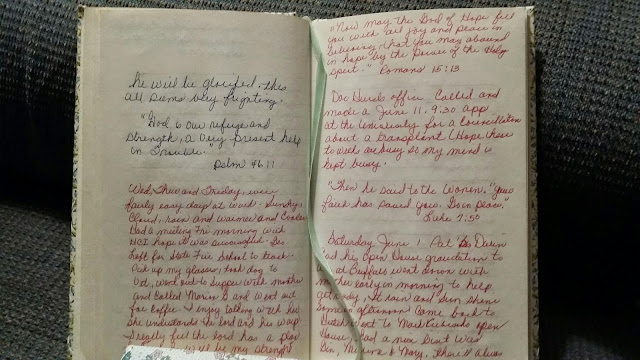 he will be glorified. this
all seems very frighting.
"God is our refuge and
strength, a very present help
in trouble."
Psalm 46:1
Wed, Thur and Friday, very
fairly easy days at work. Sunday,
Cloudy, rain and warmer and Cooler
Had a meeting Fri morning with
HCI hope it was successful.
Left for State Fire School to teach.
Pick up my glasses, took dog to
Vet, went out to supper with mother
and Called Marion B and went out
for Coffee. I enjoy talking with her
She understands the Lord and his ways
I really feel the Lord has a plan
will be my strength
"Now may the God of Hope fill
you with all joy and peace in
believing, that you may abound
in hope by the power of the Holy
Spirit." Romans 15:13
Doc Hurds office Called and
made a June 11, 9:30 app
at the University for a Consultation
about a transplant I Hope these
two weeks are busy so my mind is
kept busy.
"Then he said to the Women, "your
faith has saved you. Go in peace."
Luke 7:50
Saturday June 1. Pat & Dawn
had the Open House graduation to
at Buffalo went down with
mother early in morning to help
get ready. It rain and Sun Shine
Some in afternoon Came back to
went to Mark Richards open
House, Had a nice
Marine & Mary,